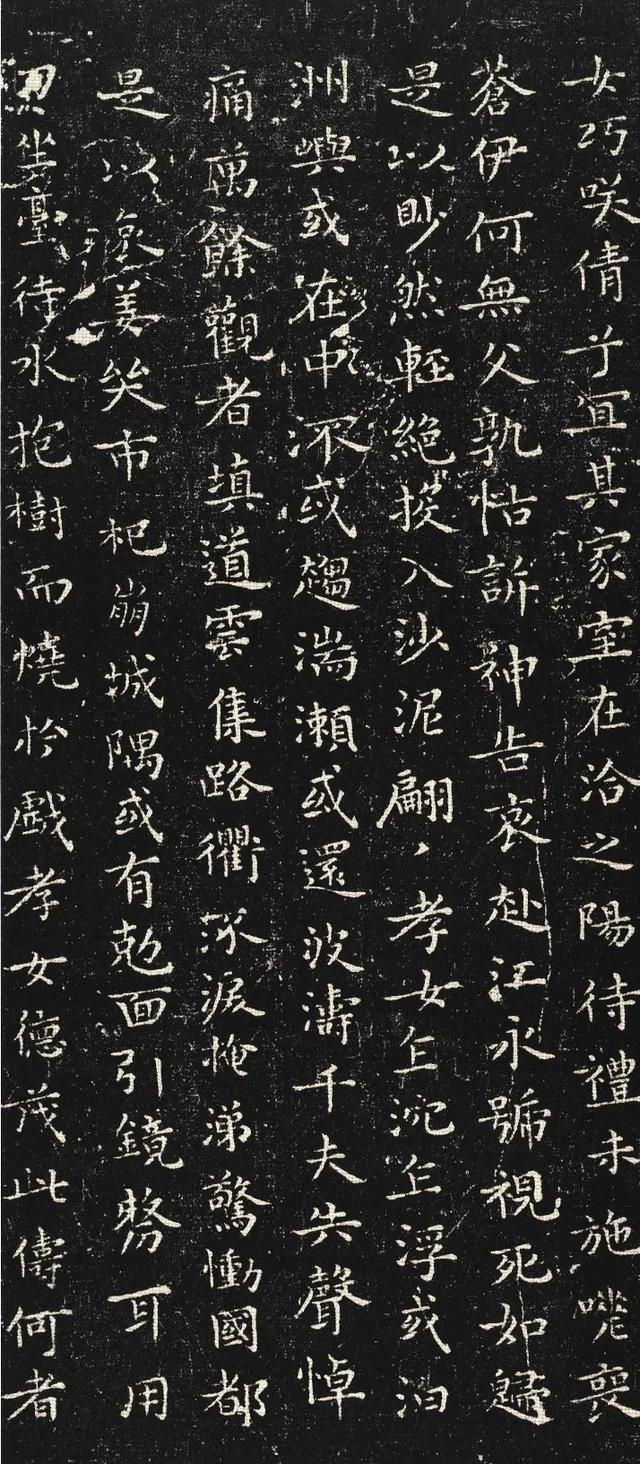 女巧咲倩兮宜其家室在洽之陽待禮未施嗟喪
蒼伊何無父孰怙訴神告哀赴江永號視死如歸
是以眇然輕絕投入沙泥翩〻孝女乍沉乍浮或泊
洲嶼或在中流或趨湍瀨或還波濤千夫失聲悼
痛萬餘觀者填道雲集路衢流淚掩涕驚慟國都
是以哀姜哭市杞崩城隅或有剋面引鏡剺耳用
刀坐臺待水抱樹而燒於戲孝女德茂此儔何者